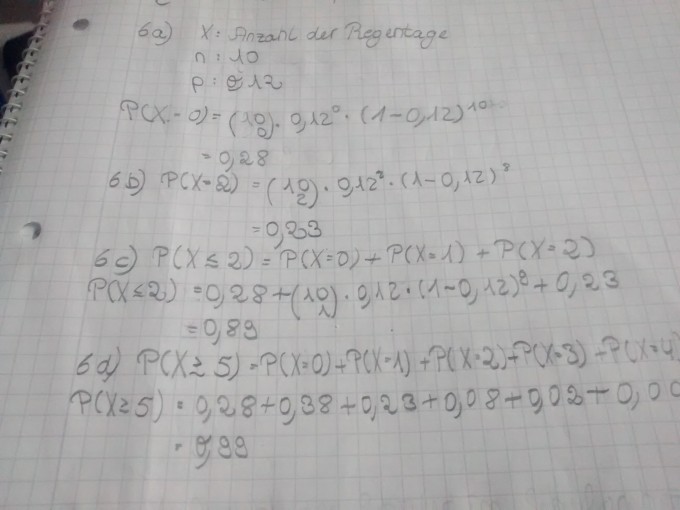 6a) X: Anzahl der Regentage
n: 10
p: 0,12
P(X=0) = (10 0) · 0,12⁰ · (1-0,12)¹⁰
= 0,28
6b) P(X=2) = (10 2) · 0,12² · (1-0,12)⁸
= 0,23
6c) P(X≤2) = P(X=0) + P(X=1) + P(X=2)
P(X≤2) = 0,28 + (10 1) · 0,12 · (1-0,12)⁹ + 0,23
= 0,89
6d) P(X≥5) = P(X=0) + P(X=1) + P(X=2) + P(X=3) + P(X=4)
P(X≥5) = 0,28 + 0,38 + 0,23 + 0,08 + 0,02 + 0,00
= 0,99